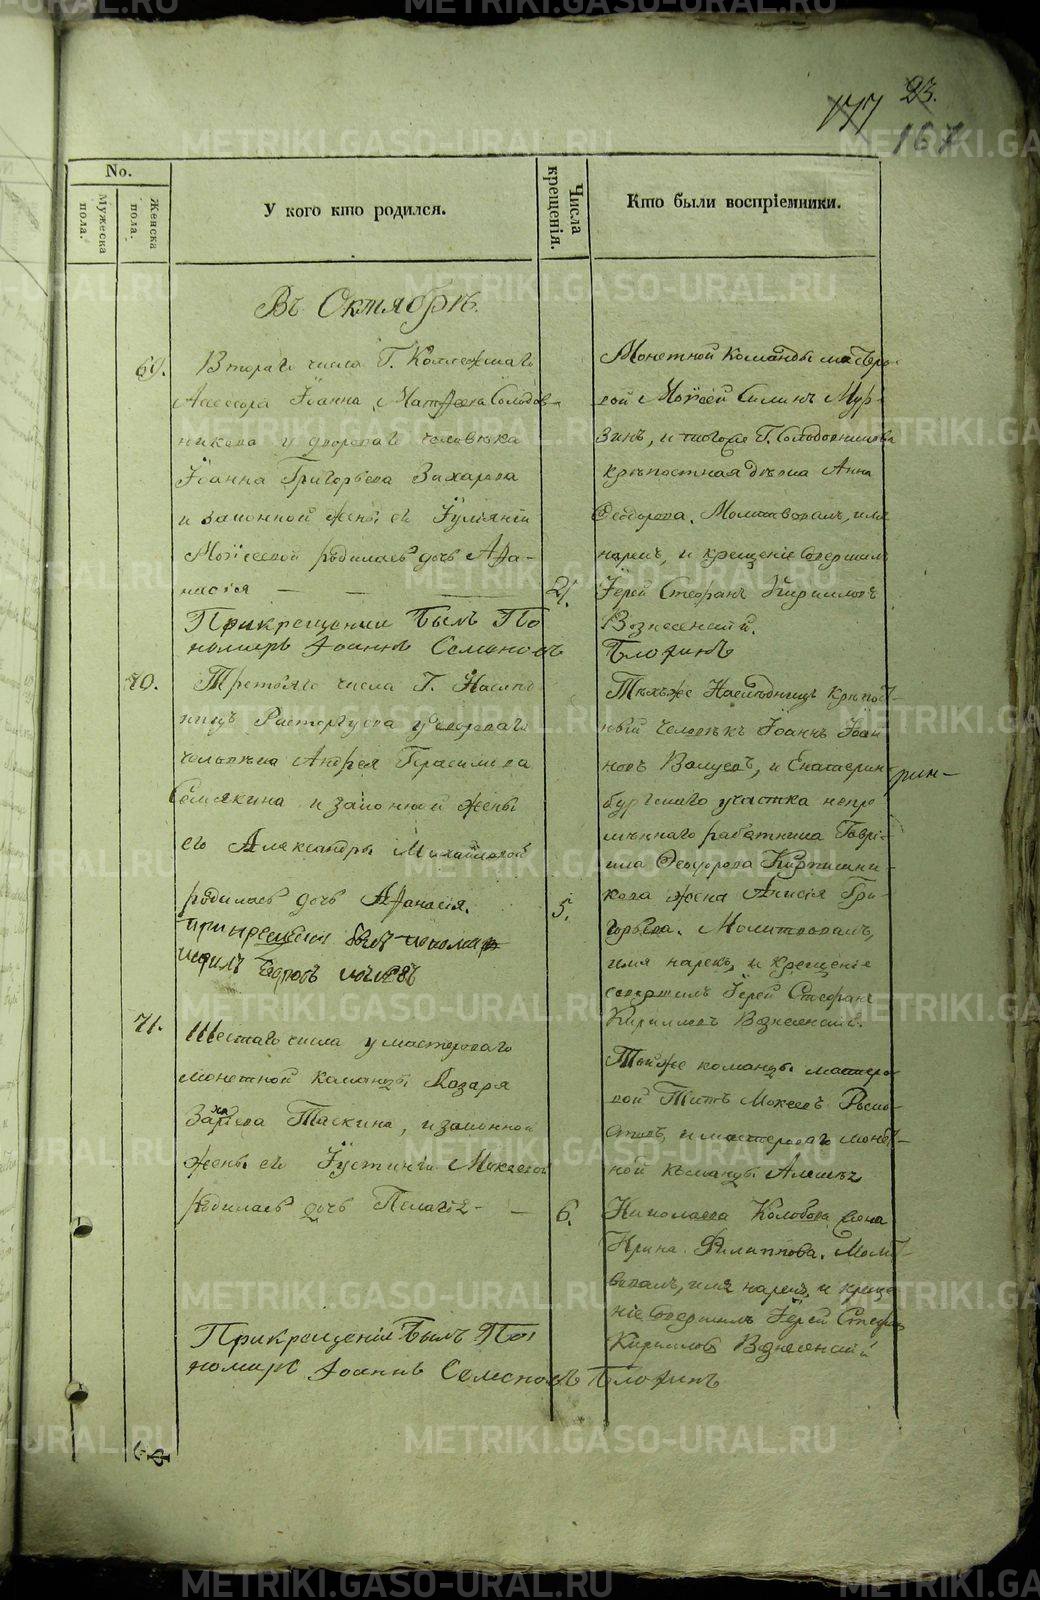 177 23.
167
No.
Мужеска пола.
Женска пола.
У кого кто родился.
Числа крещенія.
Кто были воспріемники.
Въ Октябрѣ.
69.
Втораго числа Г. Коллежскаго
Ассесора Іоанна Матфеева Солодов-
никова у двороваго человѣка
Іоанна Григорьева Захарова
и законной жены его Іуліаніи
Моѵсеевой родилась дочь Афа-
насія — — —
2.
Прикрещеніи былъ По
номарь Іоаннъ Семеновъ
Монетной Команды мастеро-
вой Моѵсей Силинъ Мур-
зинъ, и тогоже Г. Солодовникова
крѣпостная дѣвка Анна
Феодорова. Молитвовалъ, имя
нарекъ, и крещеніе совершилъ
Іерей Стефанъ Кирилловъ
Вознесенскій.
Блохинъ
70.
Третьяго числа Г. Наслѣд-
ницъ Расторгуева у двороваго
человѣка Андрея Герасимова
Семякина и законной жены
его Александры Михайловой
родилась дочь Афанасія.
5.
при крещеніи былъ
Тѣхъже Наслѣдницъ крѣпост-
ный человѣкъ Іоаннъ Іоан-
новъ и Екатерин-
рин-
бургскаго участка непре
мѣннаго работника Гаврі-
ила Феодорова Кирпишни-
кова жена Анисія Гри-
горьева. Молитвовалъ,
имя нарекъ, и крещеніе
совершилъ Іерей Стефанъ
Кирилловъ Вознесенскій.
71.
Шестаго числа у мастероваго
монетной команды Лазаря
Захарева Таскина, и законной
жены его Іустиніи Макѣевой
родилась дочь Пелагія — —
6.
Прикрещеніи былъ По
номарь Іоаннъ Семеновъ Блохинъ
Тойже команды мастеро-
вой Титъ Мокеевъ
и мастероваго монет-
ной команды Алексѣя
Николаева Колобова жена
Ирина Филиппова. Молит-
вовалъ, имя нарекъ, и креще-
ніе совершилъ Іерей Стефанъ
Кирилловъ Вознесенскій